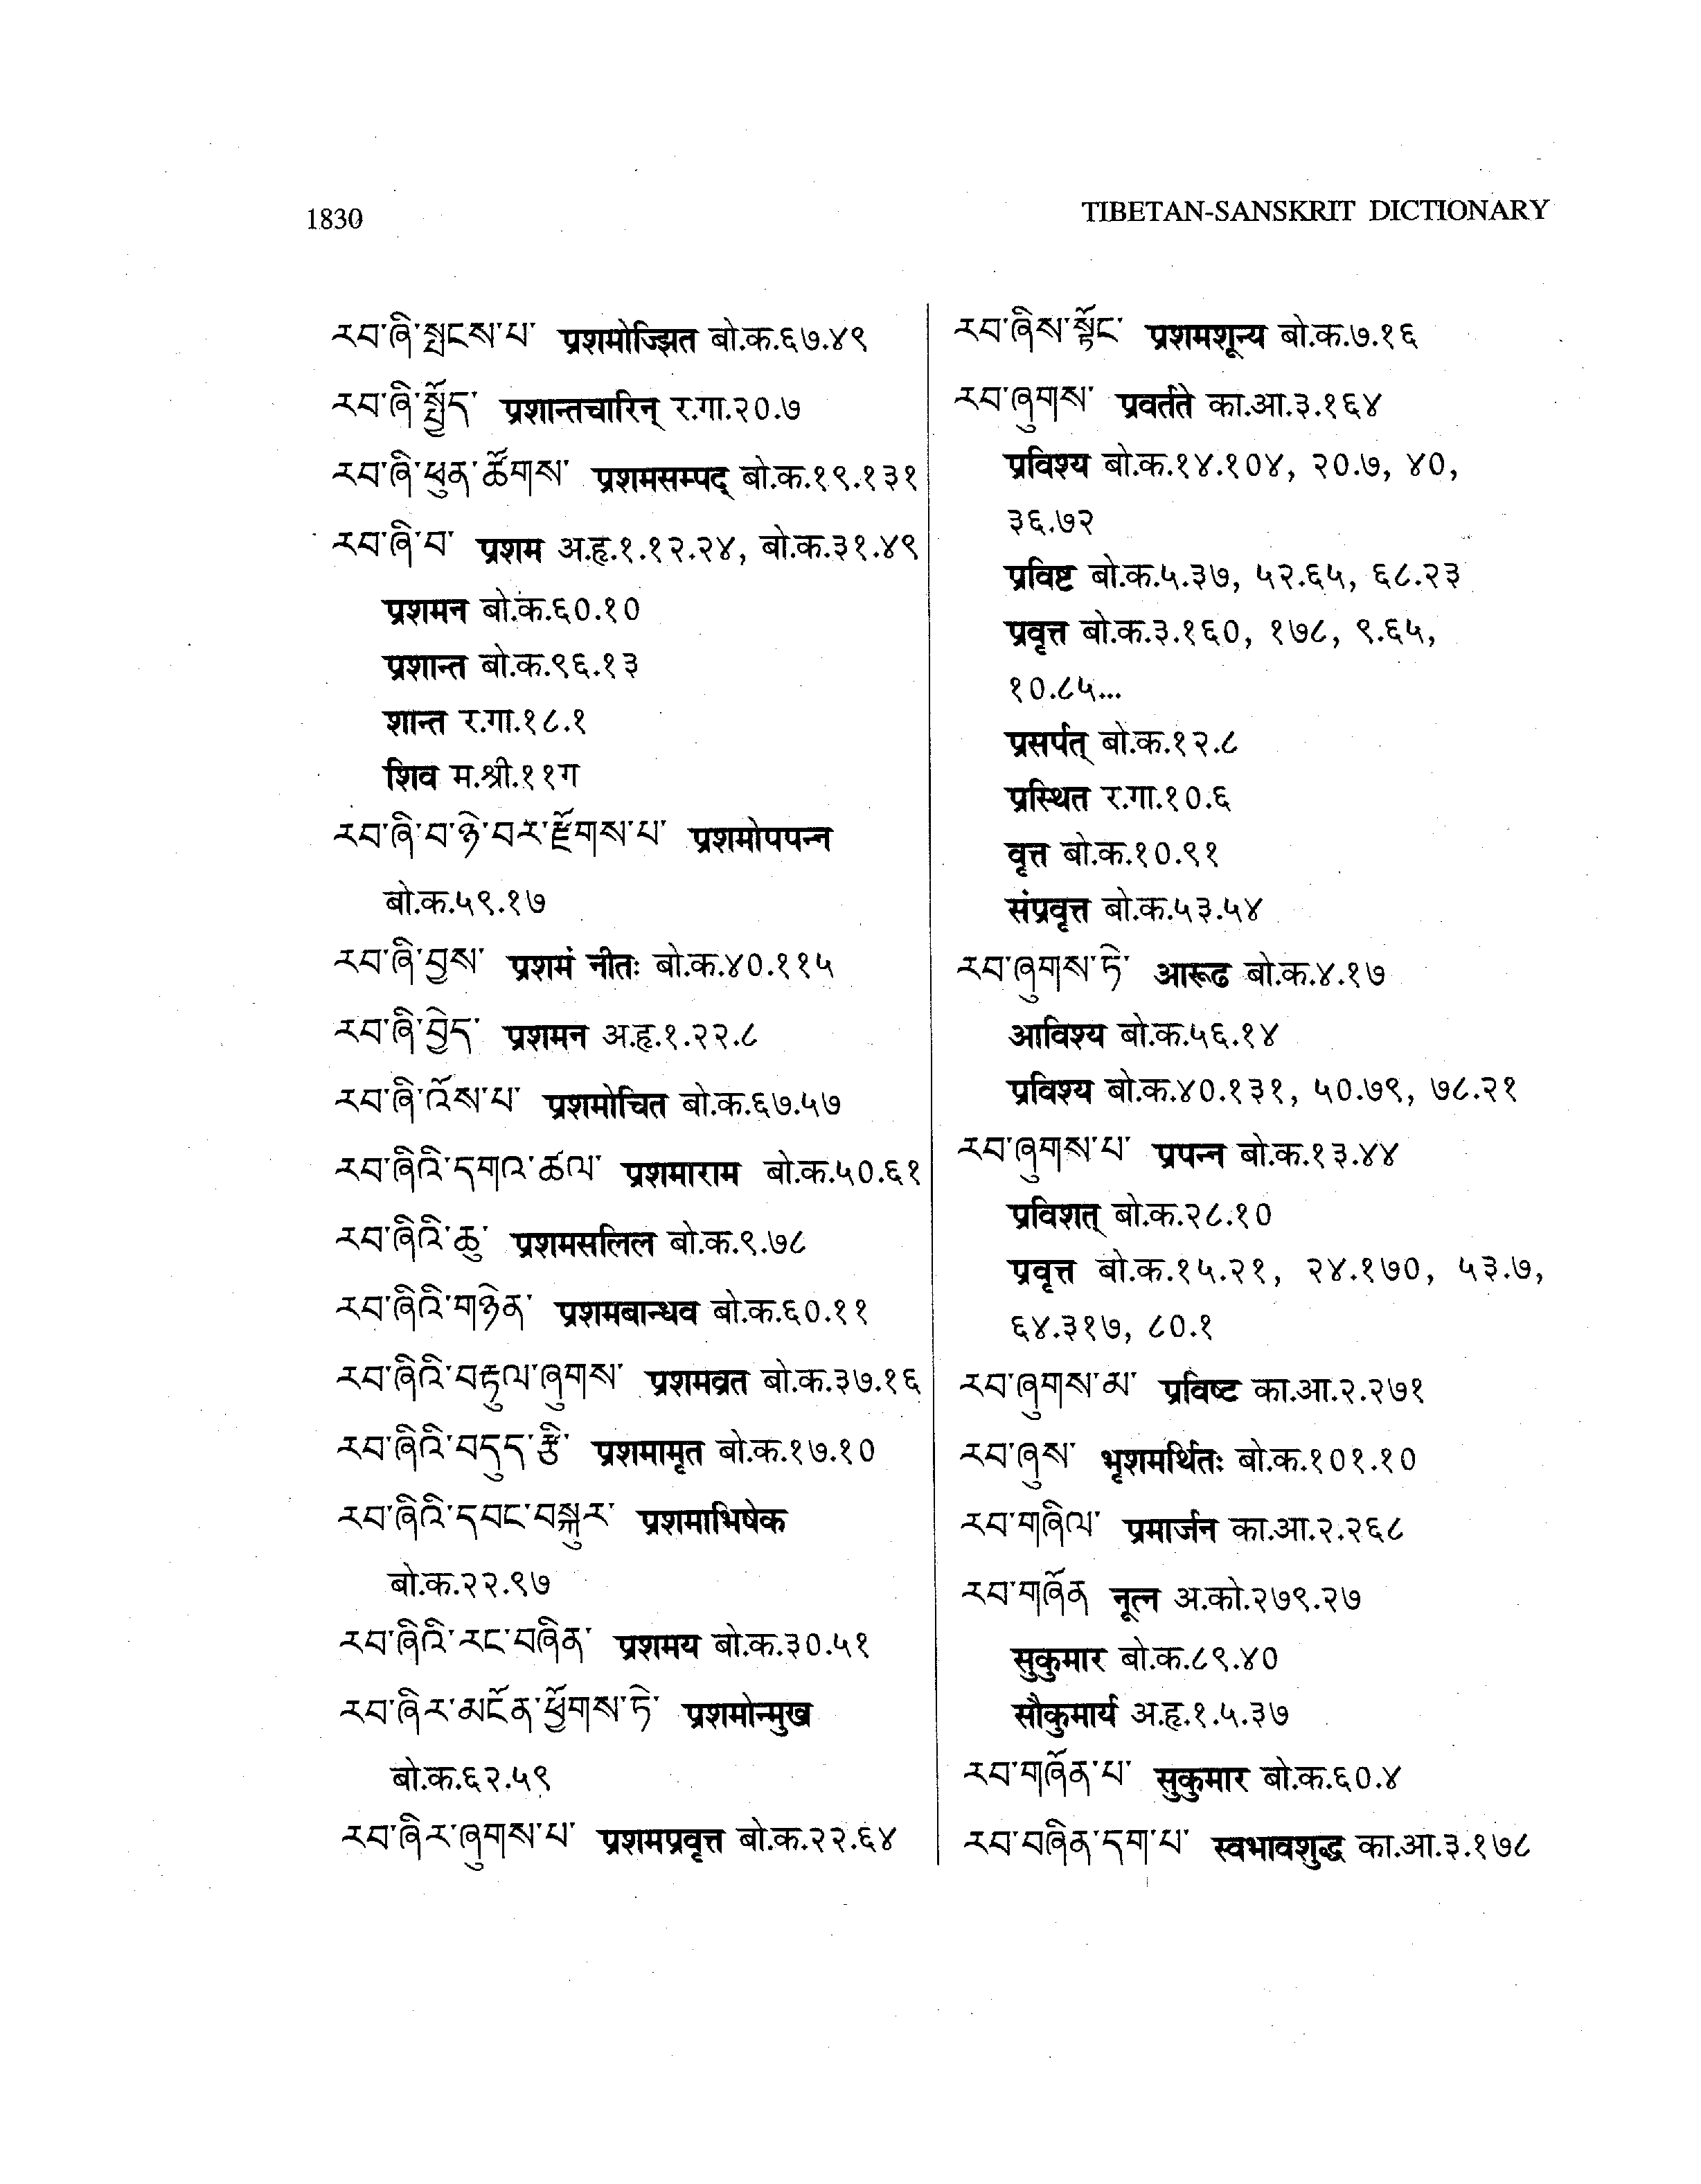 1830
TIBETAN-SANSKRIT DICTIONARY
རབ་ཞི་སྤངས་པ་ प्रशमोज्झित बो.क.६७.४९
རབ་ཞི་སྤྱོད་ प्रशान्तचारिन् र.गा.२०.७
རབ་ཞི་ཕུན་ཚོགས་ प्रशमसम्पद् बो.क.१९.१३१
རབ་ཞི་བ་ प्रशम अ.हृ.१.१२.२४, बो.क.३१.४९
प्रशमन बो.क.६०.१०
प्रशान्त बो.क.९६.१३
शान्त र.गा.१८.१
शिव म.श्री.११ग
རབ་ཞི་བ་ཉེ་བར་རྫོགས་པ་ प्रशमोपपन्न
बो.क.५९.१७
རབ་ཞི་བྱས་ प्रशमं नीतः बो.क.४०.११५
རབ་ཞི་བྱེད་ प्रशमन अ.हृ.१.२२.८
རབ་ཞི་འོས་པ་ प्रशमोचित बो.क.६७.५७
རབ་ཞིའི་དགའ་ཚལ་ प्रशमाराम बो.क.५०.६१
རབ་ཞིའི་ཆུ་ प्रशमसलिल बो.क.९.७८
རབ་ཞིའི་གཉེན་ प्रशमबान्धव बो.क.६०.११
རབ་ཞིའི་བརྟུལ་ཞུགས་ प्रशमव्रत बो.क.३७.१६
རབ་ཞིའི་བདུད་རྩི་ प्रशमामृत बो.क.१७.१०
རབ་ཞིའི་དབང་བསྐུར་ प्रशमाभिषेक
बो.क.२२.९७
རབ་ཞིའི་རང་བཞིན་ प्रशमय बो.क.३०.५१
རབ་ཞིར་མངོན་ཕྱོགས་ཏེ་ प्रशमोन्मुख
बो.क.६२.५९
རབ་ཞིར་ཞུགས་པ་ प्रशमप्रवृत्त बो.क.२२.६४
རབ་ཞིས་སྟོང་ प्रशमशून्य बो.क.७.१६
རབ་ཞུགས་ प्रवर्तते का.आ.३.१६४
प्रविश्य बो.क.१४.१०४, २०.७, ४०,
३६.७२
प्रविष्ट बो.क.५.३७, ५२.६५, ६८.२३
प्रवृत्त बो.क.३.१६०, १७८, ९.६५,
१०.८५...
प्रसर्पत् बो.क.१२.८
प्रस्थित र.गा.१०.६
वृत्त बो.क.१०.९१
संप्रवृत्त बो.क.५३.५४
རབ་ཞུགས་ཏེ་ आरूढ बो.क.४.१७
आविश्य बो.क.५६.१४
प्रविश्य बो.क.४०.१३१, ५०.७९, ७८.२१
རབ་ཞུགས་པ་ प्रपन्न बो.क.१३.४४
प्रविशत् बो.क.२८.१०
प्रवृत्त बो.क.१५.२१, २४.१७०, ५३.७,
६४.३१७, ८०.१
རབ་ཞུགས་མ་ प्रविष्ट का.आ.२.२७१
རབ་ཞུས་ भृशमर्थितः बो.क.१०१.१०
རབ་གཞིལ་ प्रमार्जन का.आ.२.२६८
རབ་གཞོན नूत्न अ.को.२७९.२७
सुकुमार बो.क.८९.४०
सौकुमार्य अ.हृ.१.५.३७
རབ་གཞོན་པ་ सुकुमार बो.क.६०.४
རབ་བཞིན་དག་པ་ स्वभावशुद्ध का.आ.३.१७८